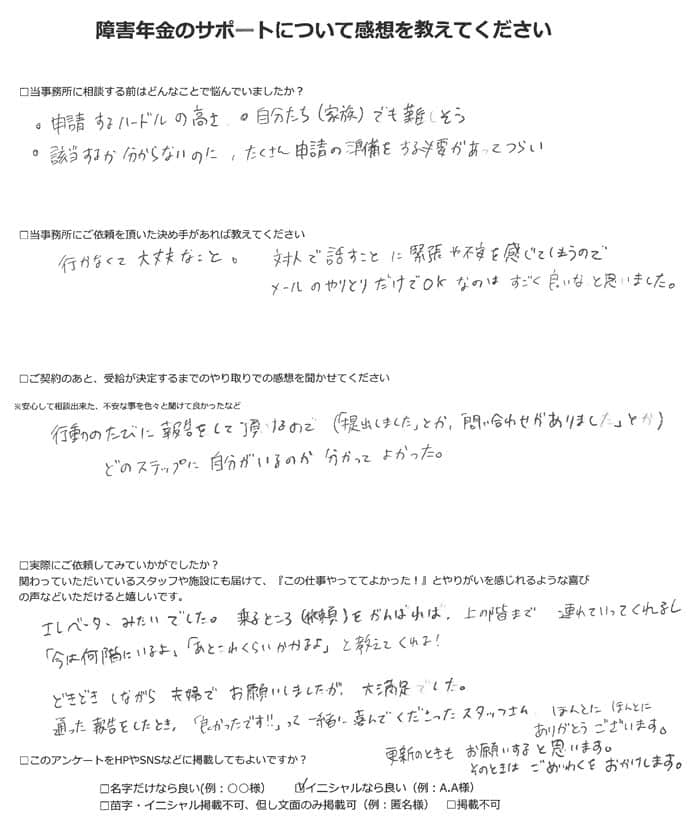 障害年金のサポートについて感想を教えてください
□当事務所に相談する前はどんなことで悩んでいましたか？
。申請するハードルの高さ 。自分たち（家族）でも難しそう
。該当するか分からないのに、たくさん申請の準備をする必要があってつらい
□当事務所にご依頼を頂いた決め手があれば教えてください
行かなくて大丈夫なこと。 対人で話すことに緊張や不安を感じてしまうので
メールのやりとりだけでOKなのはすごく良いなと思いました。
□ご契約のあと、受給が決定するまでのやり取りでの感想を聞かせてください
※安心して相談出来た、不安な事を色々と聞けて良かったなど
行動のたびに報告をして頂けるので（「提出しました」とか、「問い合わせがありました」とか）
どのステップに自分がいるのか分かってよかった。
□実際にご依頼してみていかがでしたか？
関わっていただいているスタッフや施設にも届けて、『この仕事やっててよかった！』とやりがいを感じれるような喜び
の声などいただけると嬉しいです。
エレベーターみたいでした。乗るところ（依頼）をがんばれば、上の階まで連れていってくれるし
「今は何階にいるよ」「あとこれくらいかかるよ」と教えてくれる！
どきどきしながら夫婦でお願いしましたが、大満足でした。
通った報告をしたとき、「良かったです!!」って一緒に喜んでくださったスタッフさん ほんとにほんとに
ありがとうございます。
更新のときもお願いすると思います。
そのときはごめいわくをおかけします。
□このアンケートをHPやSNSなどに掲載してもよいですか？
□名字だけなら良い(例：○○様） ☑イニシャルなら良い（例：A.A様）
□苗字・イニシャル掲載不可、但し文面のみ掲載可（例：匿名様） □掲載不可